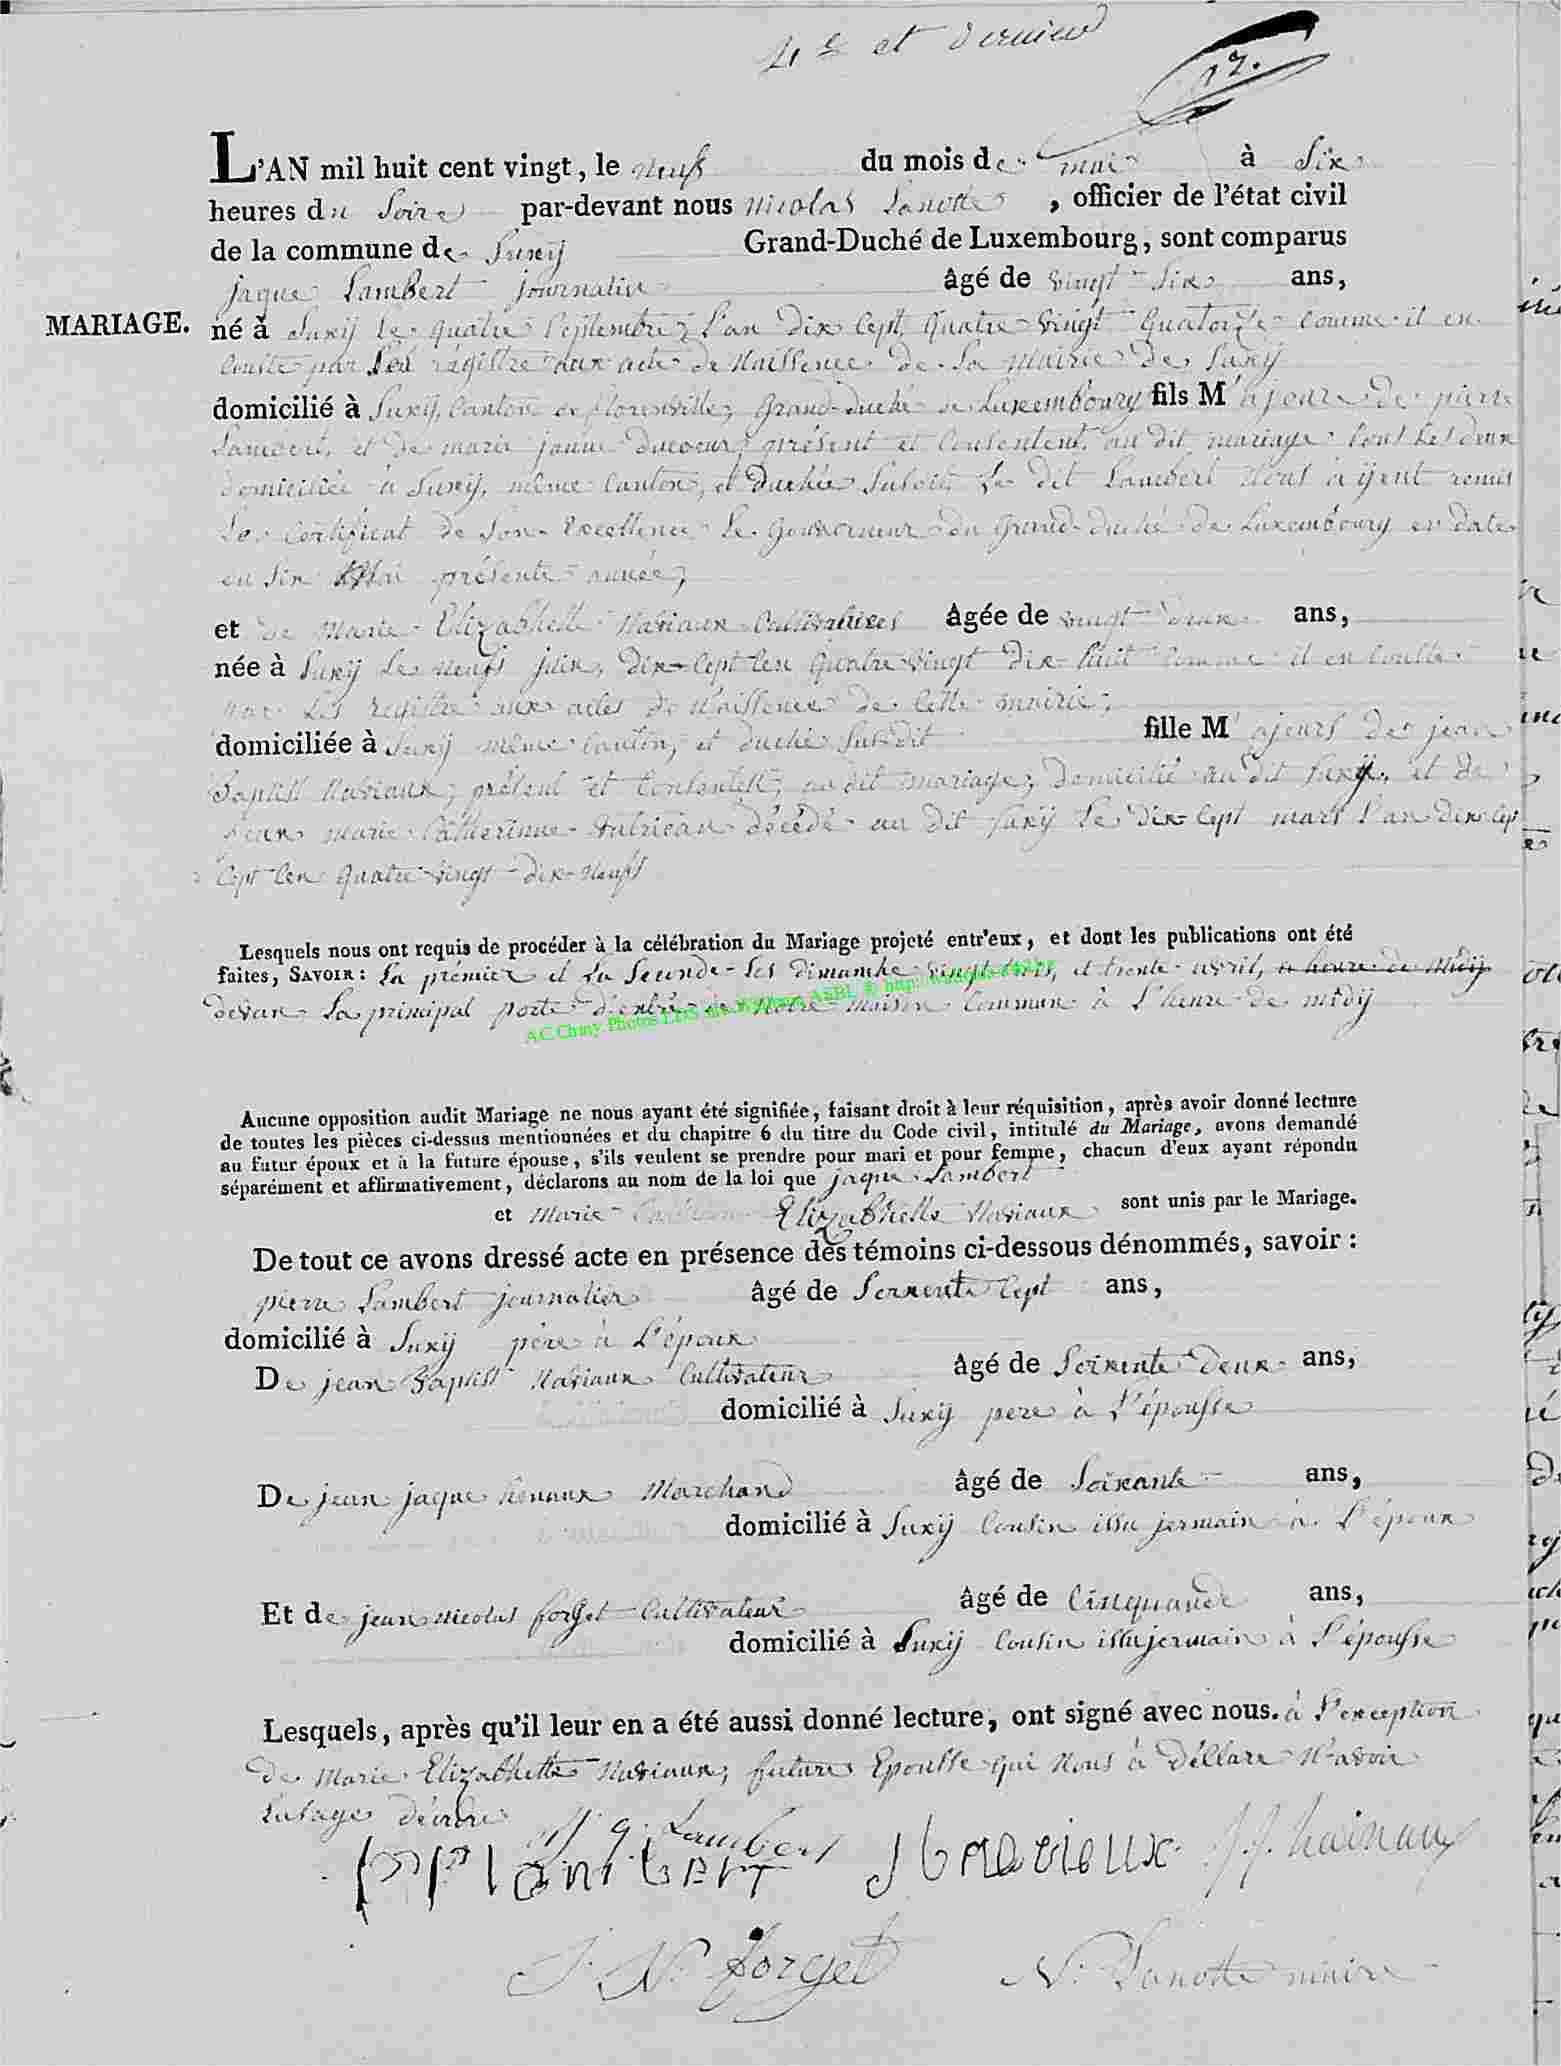 4e et dernier
12.
L'AN mil huit cent vingt, le neuf du mois de mai à Six
heures du Soire par-devant nous nicolas Lanotte, officier de l'état civil
de la commune de Suxÿ Grand-Duché de Luxembourg, sont comparus
jaque Lambert journalier âgé de vingt-Six ans,
MARIAGE.
né à Suxÿ le quatre Septembre, l'an dix Sept quatre-vingt quatorze comme il en
Conste par les régistre aux acte de Naissence de la Mairie de Suxÿ
domicilié à Suxÿ, Canton de florenville, Grand-duché de Luxembourg fils Majeure de pierre
Lambert, et de marie jeanne ducoeur, présent et Consentent au dit mariage tous les deux
domiciliée à Suxÿ, même Canton, et duchée Susdit Le dit Lambert Nous aÿent remis
Le Certificat de Son Excellence Le Gouverneur du Grand-duché de Luxembourg en date
du Six Mai présente année,
et de Marie Elizabhette Naviaux Cultivatrices âgée de vingt deux ans,
née à Suxÿ le neufs juin, dix-Sept Cen quatre-vingt dix-huit comme il en Conste
par Les registre aux actes de Naissence de Cette mairie;
domiciliée à Suxÿ même Canton, et duché Susdit fille Majeurs de jean
Baptist Naviaux, présent et Consentent, au dit mariage, domicilié au dit Suxÿ, et de
feux marie Catherinne décédé au dit Suxÿ le dix-Sept mars l'an dix Sept
Sept Cen quatre-vingt-dix-Neufs
Lesquels nous ont requis de procéder à la célébration du Mariage projeté entr'eux, et dont les publications ont été
faites, SAVOIR: La prémier et La Seconde Les dimanche vingt trois, et trente avril, a heure de Midij
devan La principal porte d'entrée de Notre maison Commun à L'heure de midÿ
A.C. Chiny Photos LDS
Aucune opposition audit Mariage ne nous ayant été signifiée, faisant droit à leur réquisition, après avoir donné lecture
de toutes les pièces ci-dessus mentionnées et du chapitre 6 du titre du Code civil, intitulé du Mariage, avons demandé
au futur époux et à la future épouse, s'ils veulent se prendre pour mari et pour femme, chacun d'eux ayant répondu
séparément et affirmativement, déclarons au nom de la loi que jaque Lambert
et Marie Elizabhette Naviaux sont unis par le Mariage.
De tout ce avons dressé acte en présence des témoins ci-dessous dénommés, savoir:
pierre Lambert journalier âgé de Soixente Sept ans,
domicilié à Suxÿ père à L'époux
De jean Baptist Naviaux Cultivateur âgé de Soixente Deux ans,
domicilié à Suxÿ pere à L'épousse
De jean jaque hénaux Marchand âgé de Soixante ans,
domicilié à Suxÿ Cousin issu jermain à L'époux
Et de jean nicolas forget Cultivateur âgé de Cinquande ans,
domicilié à Suxÿ Cousin issu jermain à L'épousse
Lesquels, après qu'il leur en a été aussi donné lecture, ont signé avec nous. à L'exception
de Marie Elizabhette Naviaux, future Epousse qui Nous à Déllare N'avoir
L'usage décrire
Lambert
PP lambert J b navieaux J.J. hainaux
J. N. forget N. Lanotte maire